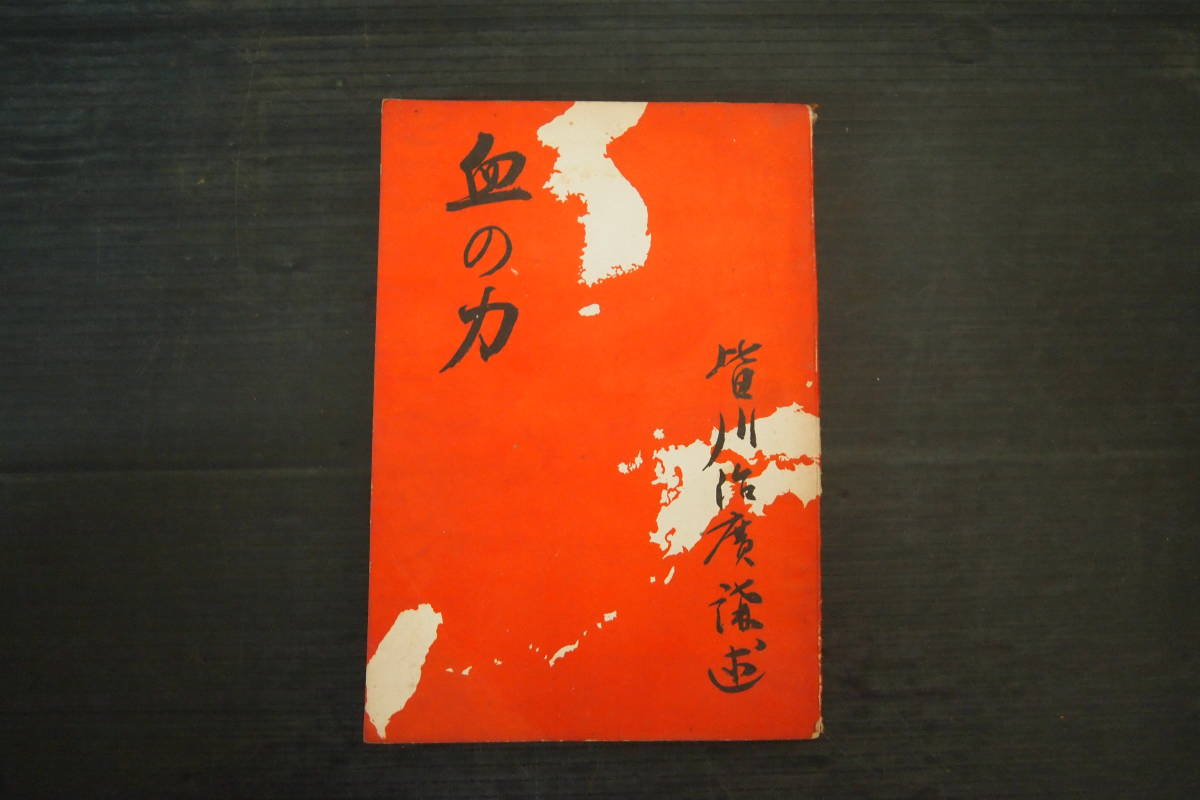 血の力
皆川治廣講述